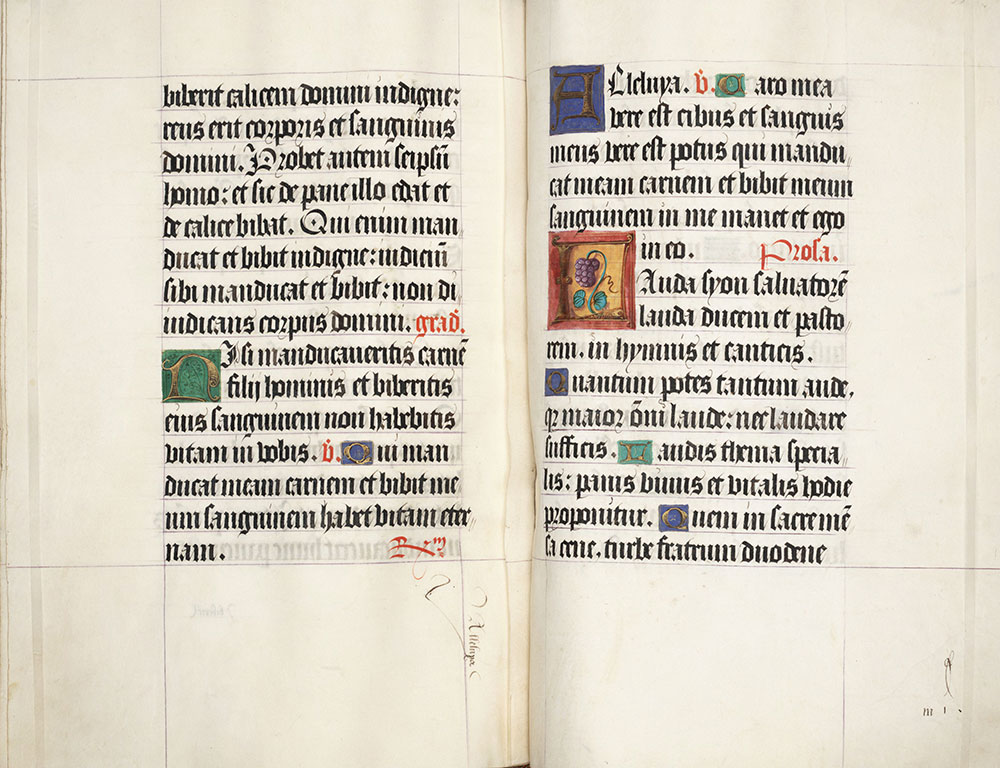 biberit calicem domini indigne:
reus erit corporis et sanguinis
domini. Probet autem seipsū
homo: et sic de pane illo edat et
de calice bibat. Qui enim man
ducat et bibit indigne: iudiciū
sibi manducat et bibit: non di
iudicans corpus domini. grad̄.
Nisi manducaveritis carnē
filij hominis et biberitis
eius sanguinem non habebitis
vitam in vobis. v̄. Qui man
ducat meam carnem et bibit me
um sanguinem habet vitam eter
nam.
Alleluya
Alleluya. v̄. Caro mea
vere est cibus et sanguis
meus vere est potus qui mandu
cat meam carnem et bibit meum
sanguinem in me manet et ego
in eo. Prosa.
Lauda syon salvatorē
lauda ducem et pasto
rem. in hymnis et canticis.
Quantum potes tantum aude.
qz maior ōni laude: nec laudare
sufficis. Laudis thema specia
lis: panis vivus et vitalis hodie
proponitur. Quem in sacre mē
sa cene. turbe fratrum duodene
m 1.